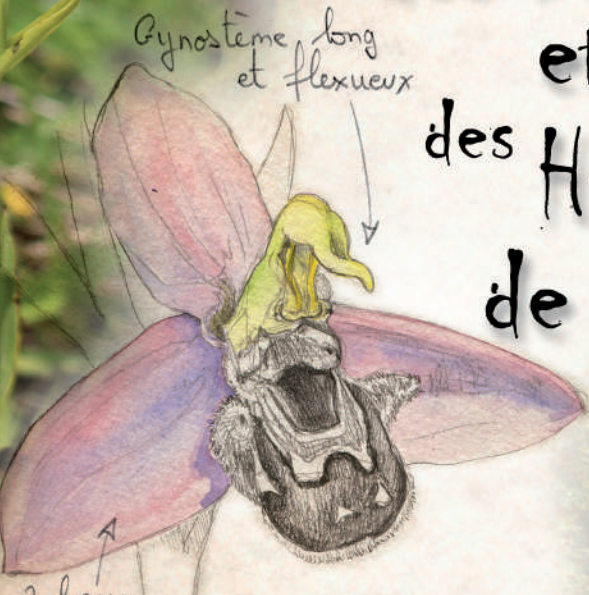 Gynostème long
et flexueux
et
des H
de